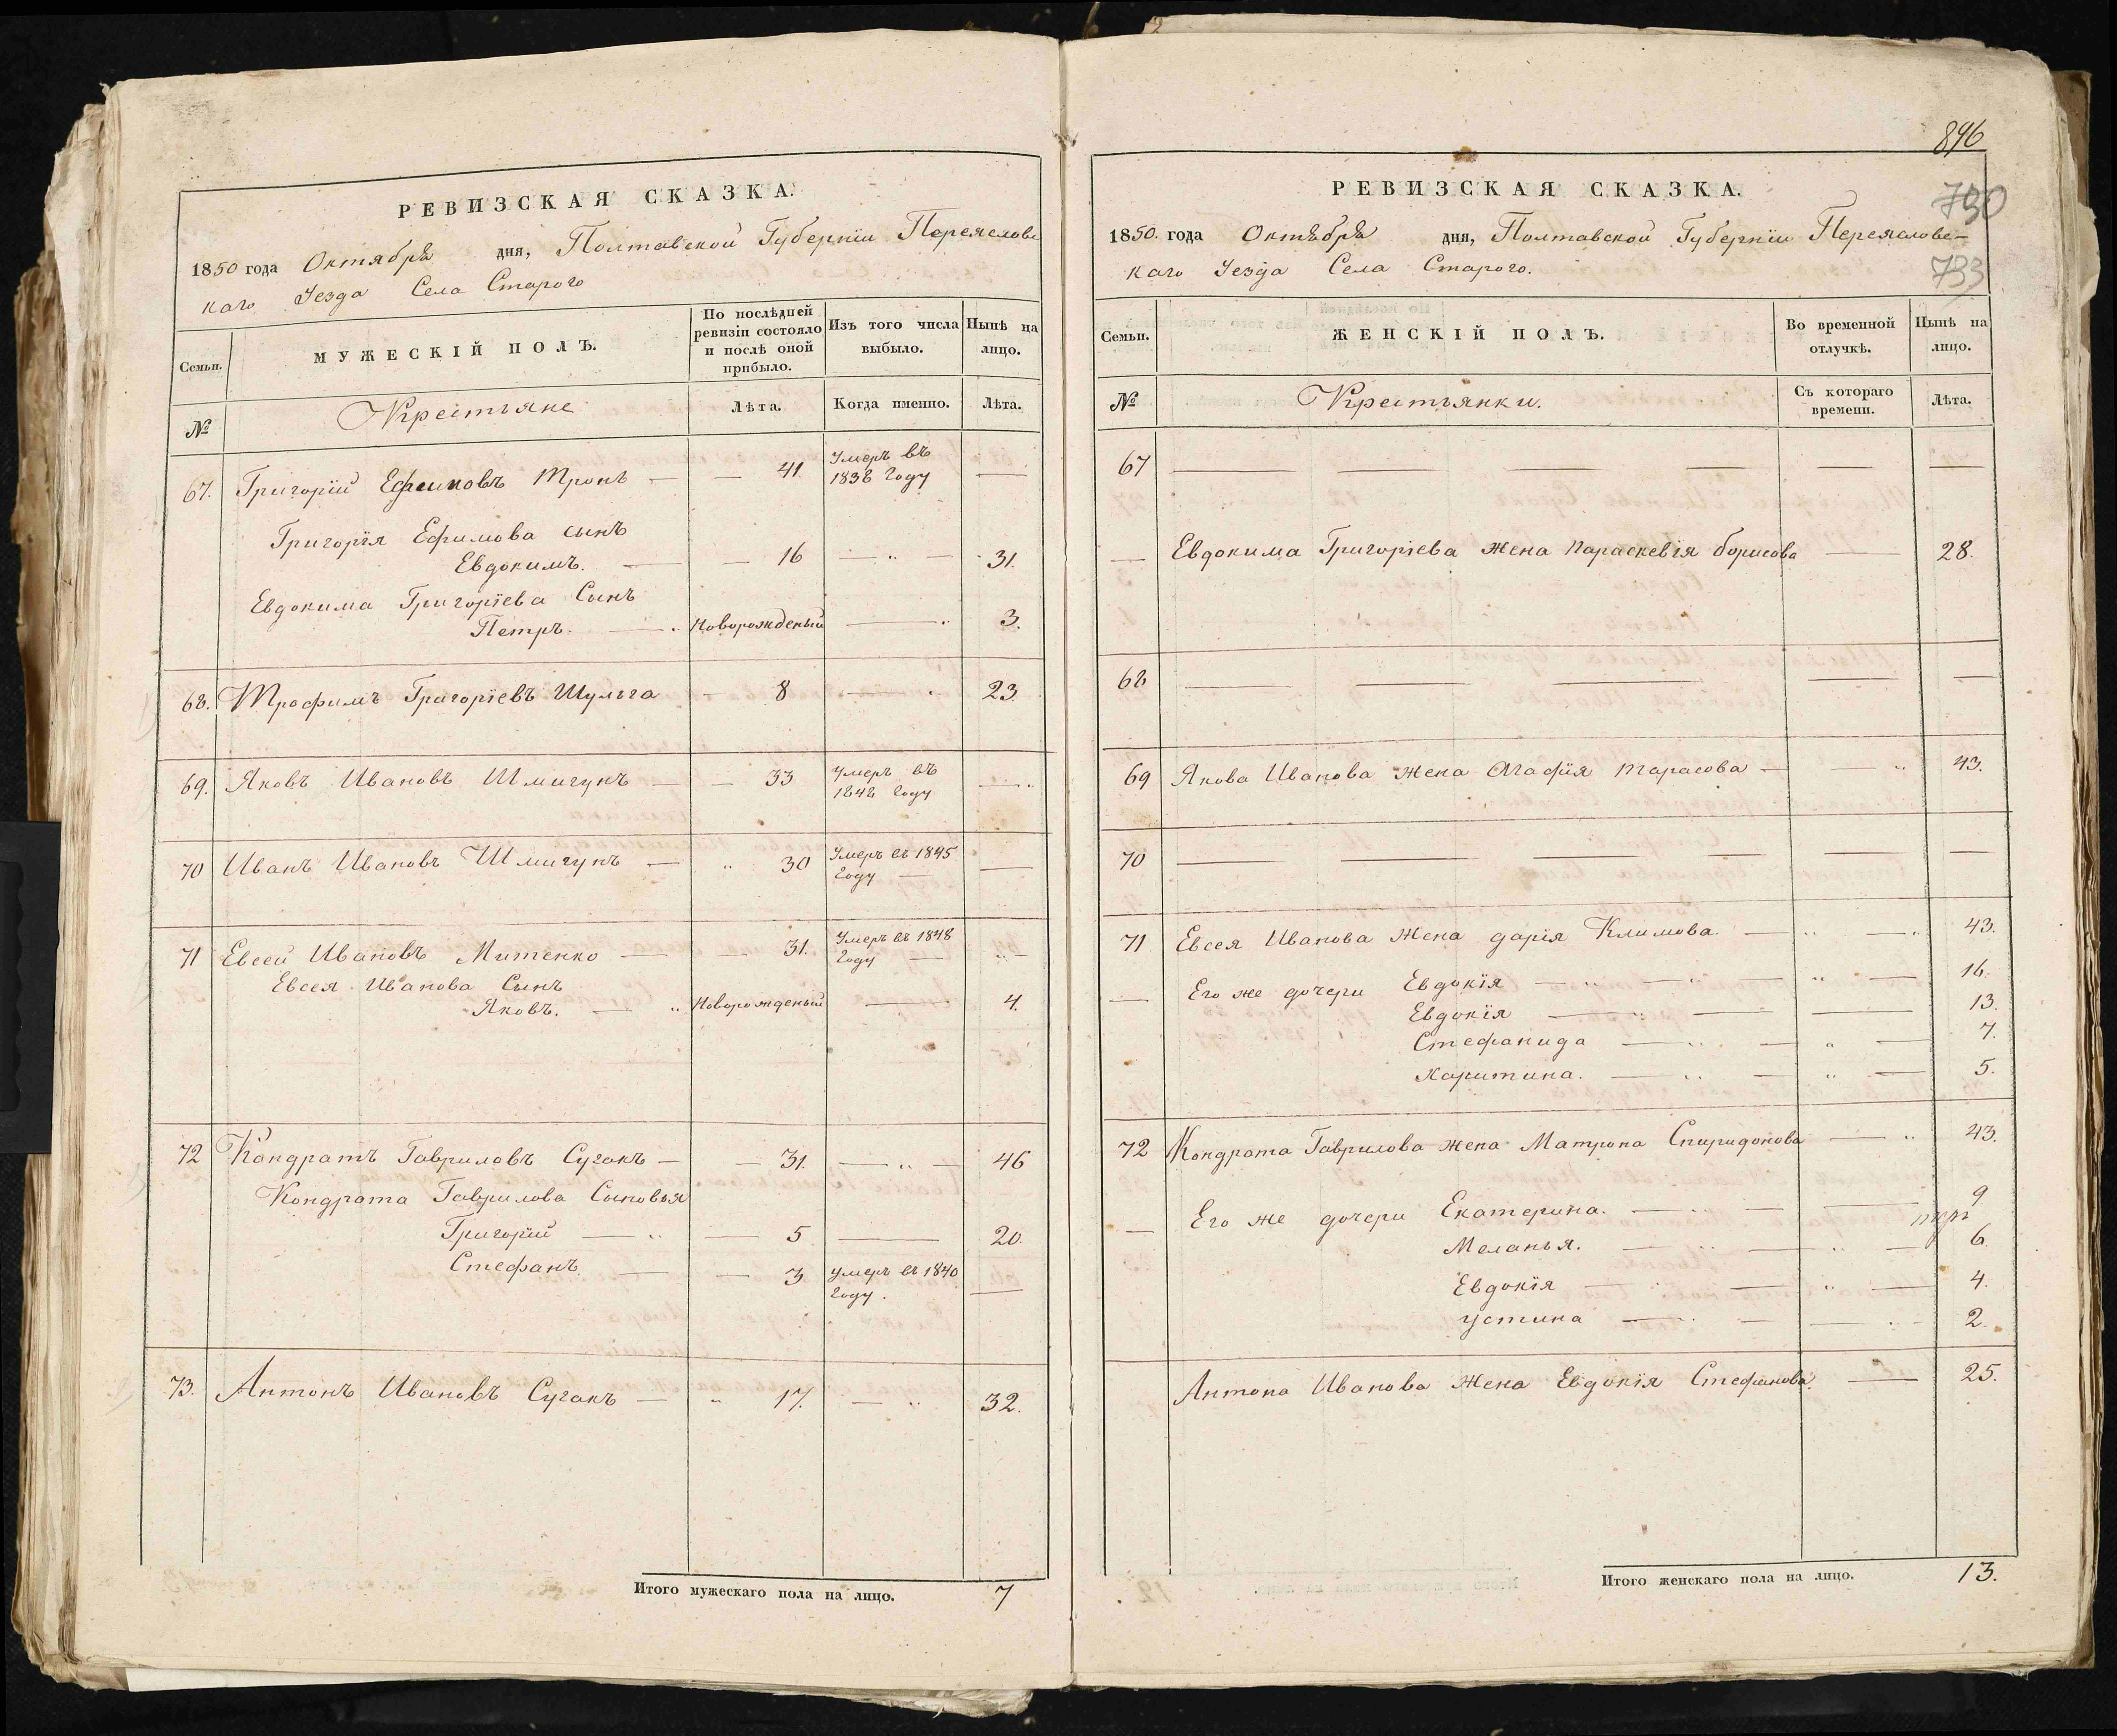 РЕВИЗСКАЯ СКАЗКА.
1850 года Октября дня, Полтавской Губерніи Переяслове
каго Уезда Села Старого
Семьи. МУЖЕСКІЙ ПОЛЪ. По послѣдней ревизіи состояло и послѣ оной прибыло. Изъ того числа выбыло. Нынѣ на лицо.
№ Крестьяне Лѣта. Когда именно. Лѣта.
67. Григорій Ефимовъ Тропъ — — 41 Умеръ въ 1838 Году —
Григорія Ефимова сынъ
Евдокимъ. — — 16 — „ — 31.
Евдокима Григоріева Сынъ
Петръ. — Новорожденый — 3.
68. Трофимъ Григоріевъ Шульга — 8 — 23
69. Яковъ Ивановъ Шмигунъ — — 33 Умеръ въ 1848 Году —
70 Иванъ Ивановъ Шмигунъ — „ 30 Умеръ въ 1845 Году — —
71 Евсей Ивановъ Митенко — — 31. Умеръ въ 1848 Году — —
Евсея Иванова Сынъ
Яковъ. — „ Новорожденый — 4.
72 Кондратъ Гавриловъ Сугакъ — — 31. — „ — 46
Кондрата Гаврилова Сыновья
Григорій — „ — 5 — 20.
Стефанъ. — — 3 Умеръ въ 1840 Году. —
73. Антонъ Ивановъ Сугакъ — „ 17. — „ 32.
Итого мужескаго пола на лицо. 7
846
РЕВИЗСКАЯ СКАЗКА.
730
1850. года Октября дня, Полтавской Губерніи Переяслове-
каго Уезда Села Старого.
733
Семьи. ЖЕНСКІЙ ПОЛЪ. Во временной отлучкѣ. Нынѣ на лицо.
№ Крестьянки. Съ котораго времени. Лѣта.
67 — — — — — —
— Евдокима Григоріева жена Параскевія Борисова — 28.
68 — — — — —
69 Якова Иванова жена Агафія Тарасова — — „ 43.
70 — — — — — —
71 Евсея Иванова жена Дарія Климова — „ — „ 43.
— Его же дочери Евдокія — „ — „ — „ — 16.
Евдокія — „ — — 13.
Стефанида — „ — „ — 7.
Харитина. — „ — „ — 5.
72 Кондрата Гаврилова жена Матрона Спиридонова — „ 43.
— Его же дочери Екатерина. — „ — — 9
Меланья. — „ — „ — 6
Евдокія — „ — „ — 4.
Устина — „ — — „ — 2.
Антона Иванова жена Евдокія Стефанова. — 25.
Итого женскаго пола на лицо. 13.